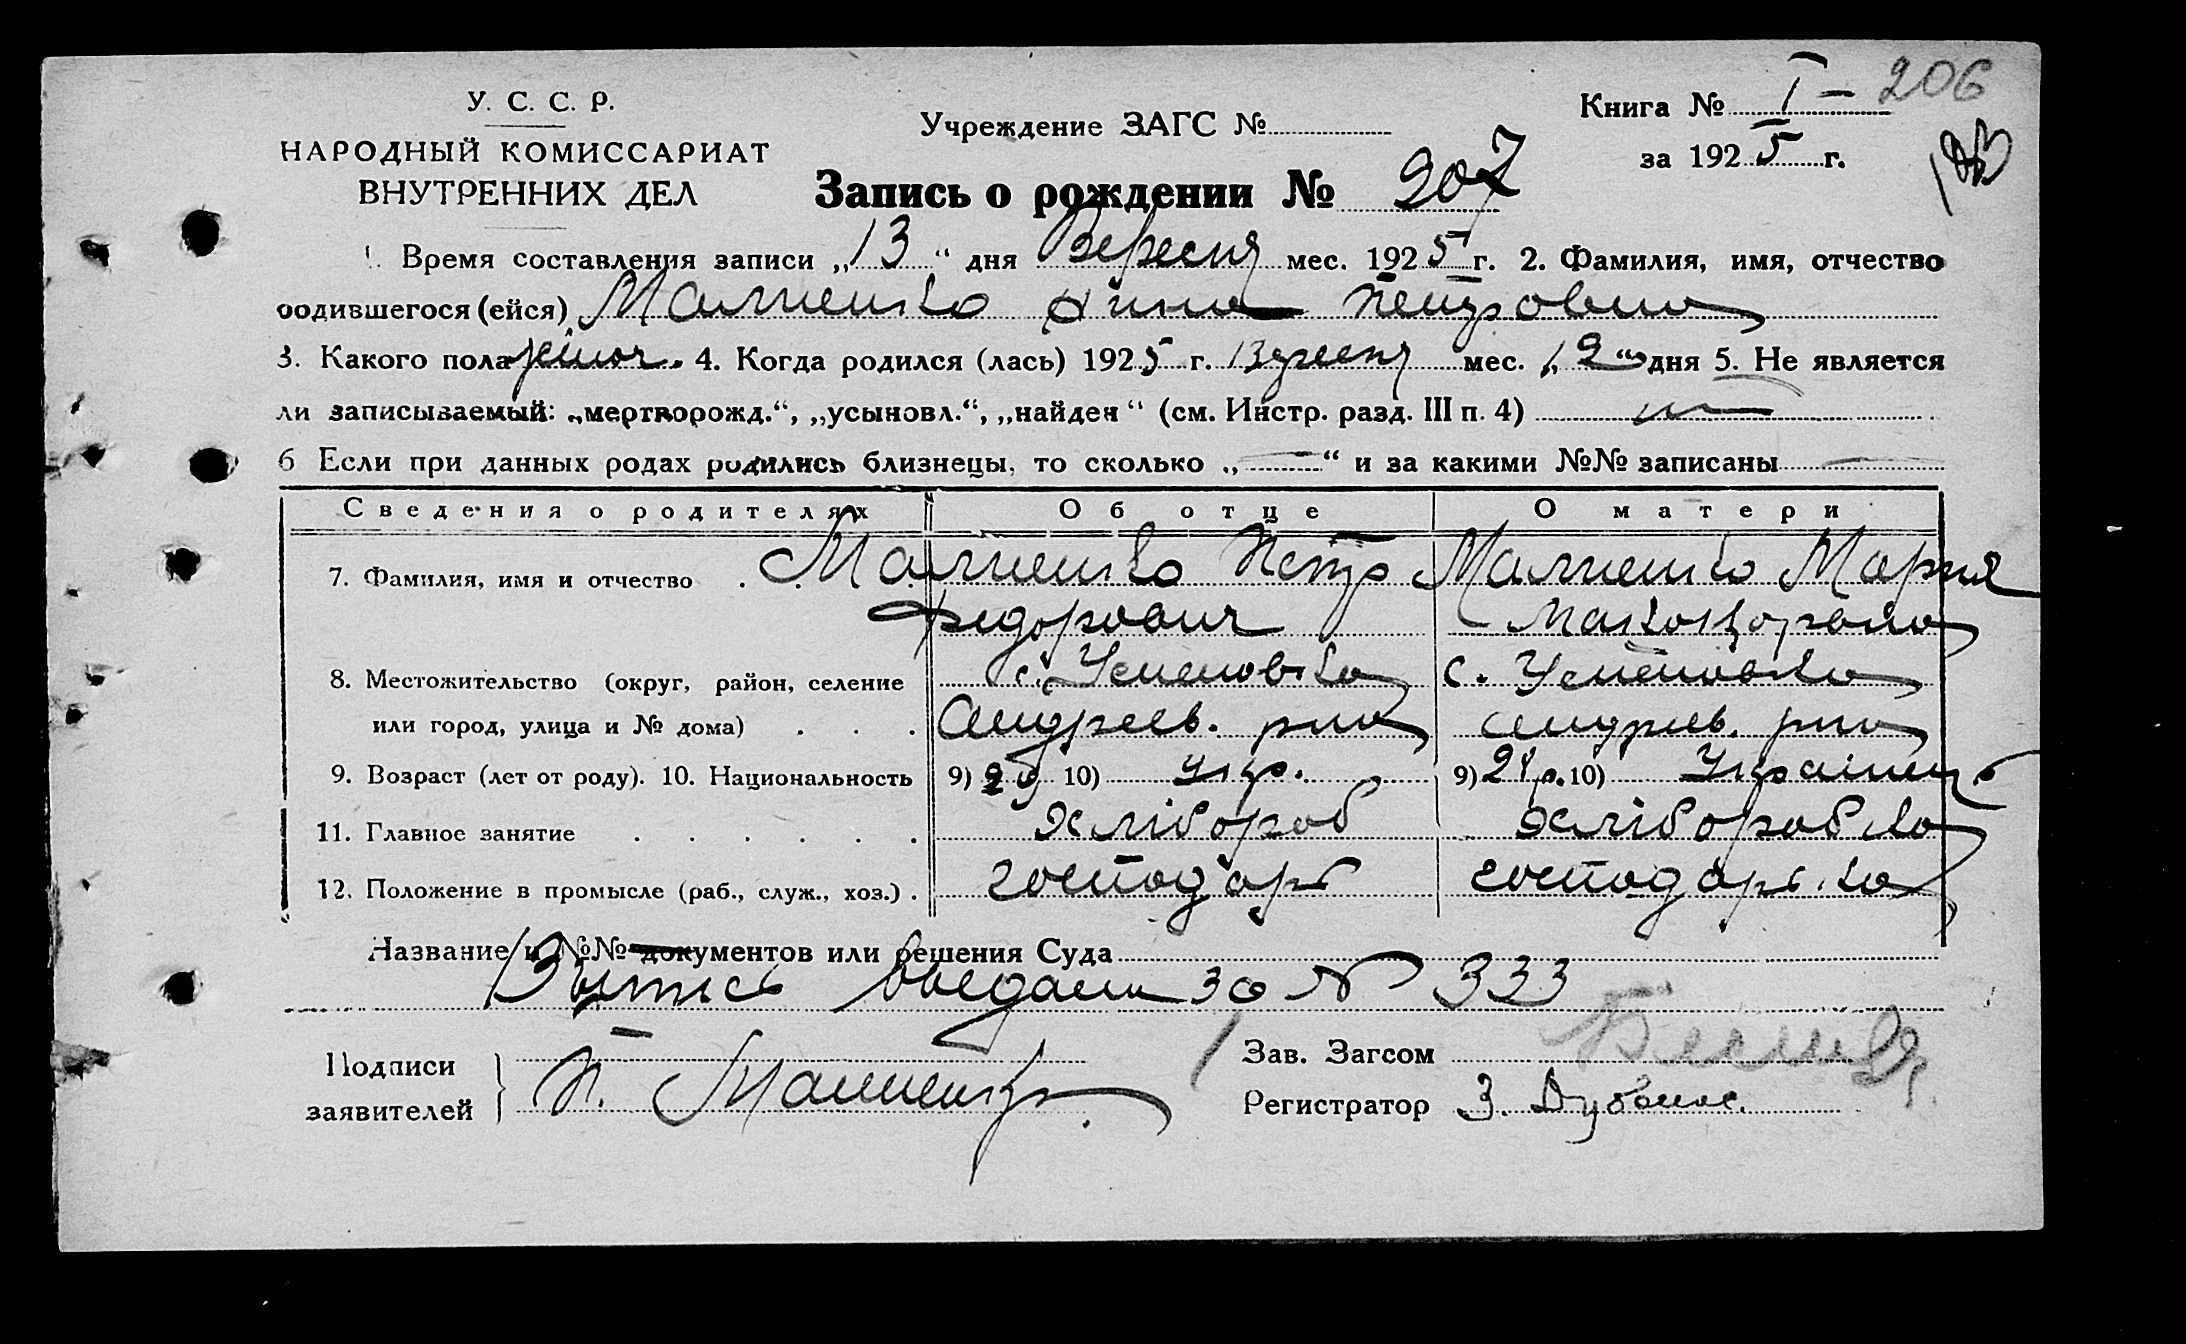 У. С. С. Р.
НАРОДНЫЙ КОМИССАРИАТ
ВНУТРЕННИХ ДЕЛ
Учреждение ЗАГС №
Книга № I – 206
за 1925 г.
Запись о рождении № 207
1. Время составления записи „13“ дня Вересня мес. 1925 г. 2. Фамилия, имя, отчество
родившегося (ейся) Нина Петровна
3. Какого пола жіноч. 4. Когда родился (лась) 1925 г. Вересня мес. дня 5. Не является
ли записываемый: „мертворожд.“, „усыновл.“, „найден“ (см. Инстр. разд. III п. 4)
6 Если при данных родах родились близнецы, то сколько „ “ и за какими №№ записаны
Сведения о родителях Об отце О матери
7. Фамилия, имя и отчество Петро Мария
Федорович
8. Местожительство (округ, район, селение с. Успеновка с. Успеновка
или город, улица и № дома) Андреев. рна Андреев. рна
9. Возраст (лет от роду). 10. Национальность 9) 10) укр. 9) 21 р. 10)
11. Главное занятие хлібороб хліборобка
12. Положение в промысле (раб., служ., хоз.) господарь господарька
Название и №№ документов или решения Суда
за № 333
Подписи
заявителей П.
Зав. Загсом
Регистратор З.